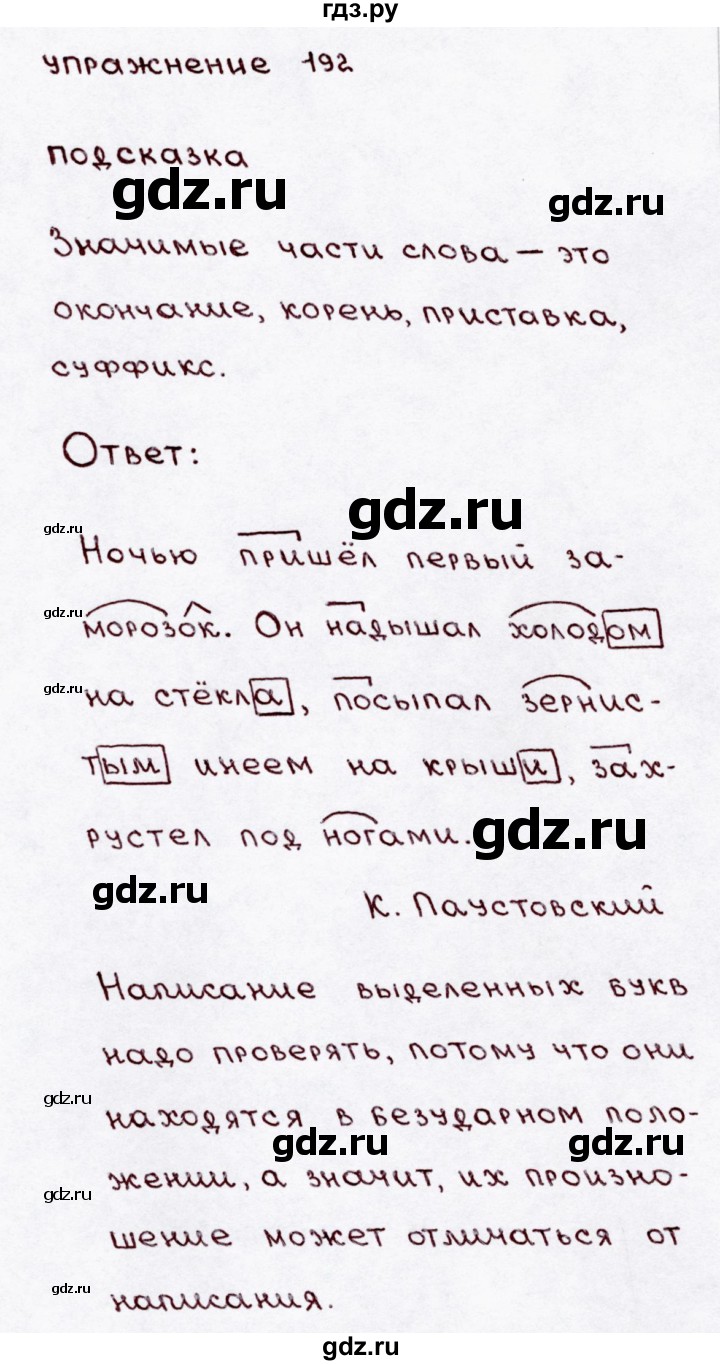 гдз.ру
упражнение 192
подсказка
gdz.ru
gdz.ru
Значимые части слова — это
окончание, корень, приставка,
суффикс.
Ответ:
gdz.ru
gdz.ru
Ночью пришёл первый за-
gdz.ru
морозок. Он надышал холодом
gdz.ru
на стёкла, посыпал зернис-
тым инеем на крыши, зах-
рустел под ногами.
gdz.ru
gdz.ru
К. Паустовский
Написание выделенных букв
надо проверять, потому что они
gdz.ru
находятся в безударном поло-
gdz.ru
gdz.ru
жении, а значит, их произно-
gdz.ru
шение может отличаться от
gdz.ru
написания.
gdz.ru